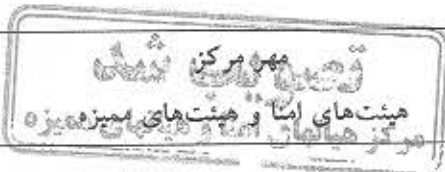 مهر مرکز
تعیین یافت شد
هیئت‌های امنا و هیئت‌های ممیزه
مرکز هیأتهای امنا و هیأتهای ممیزه